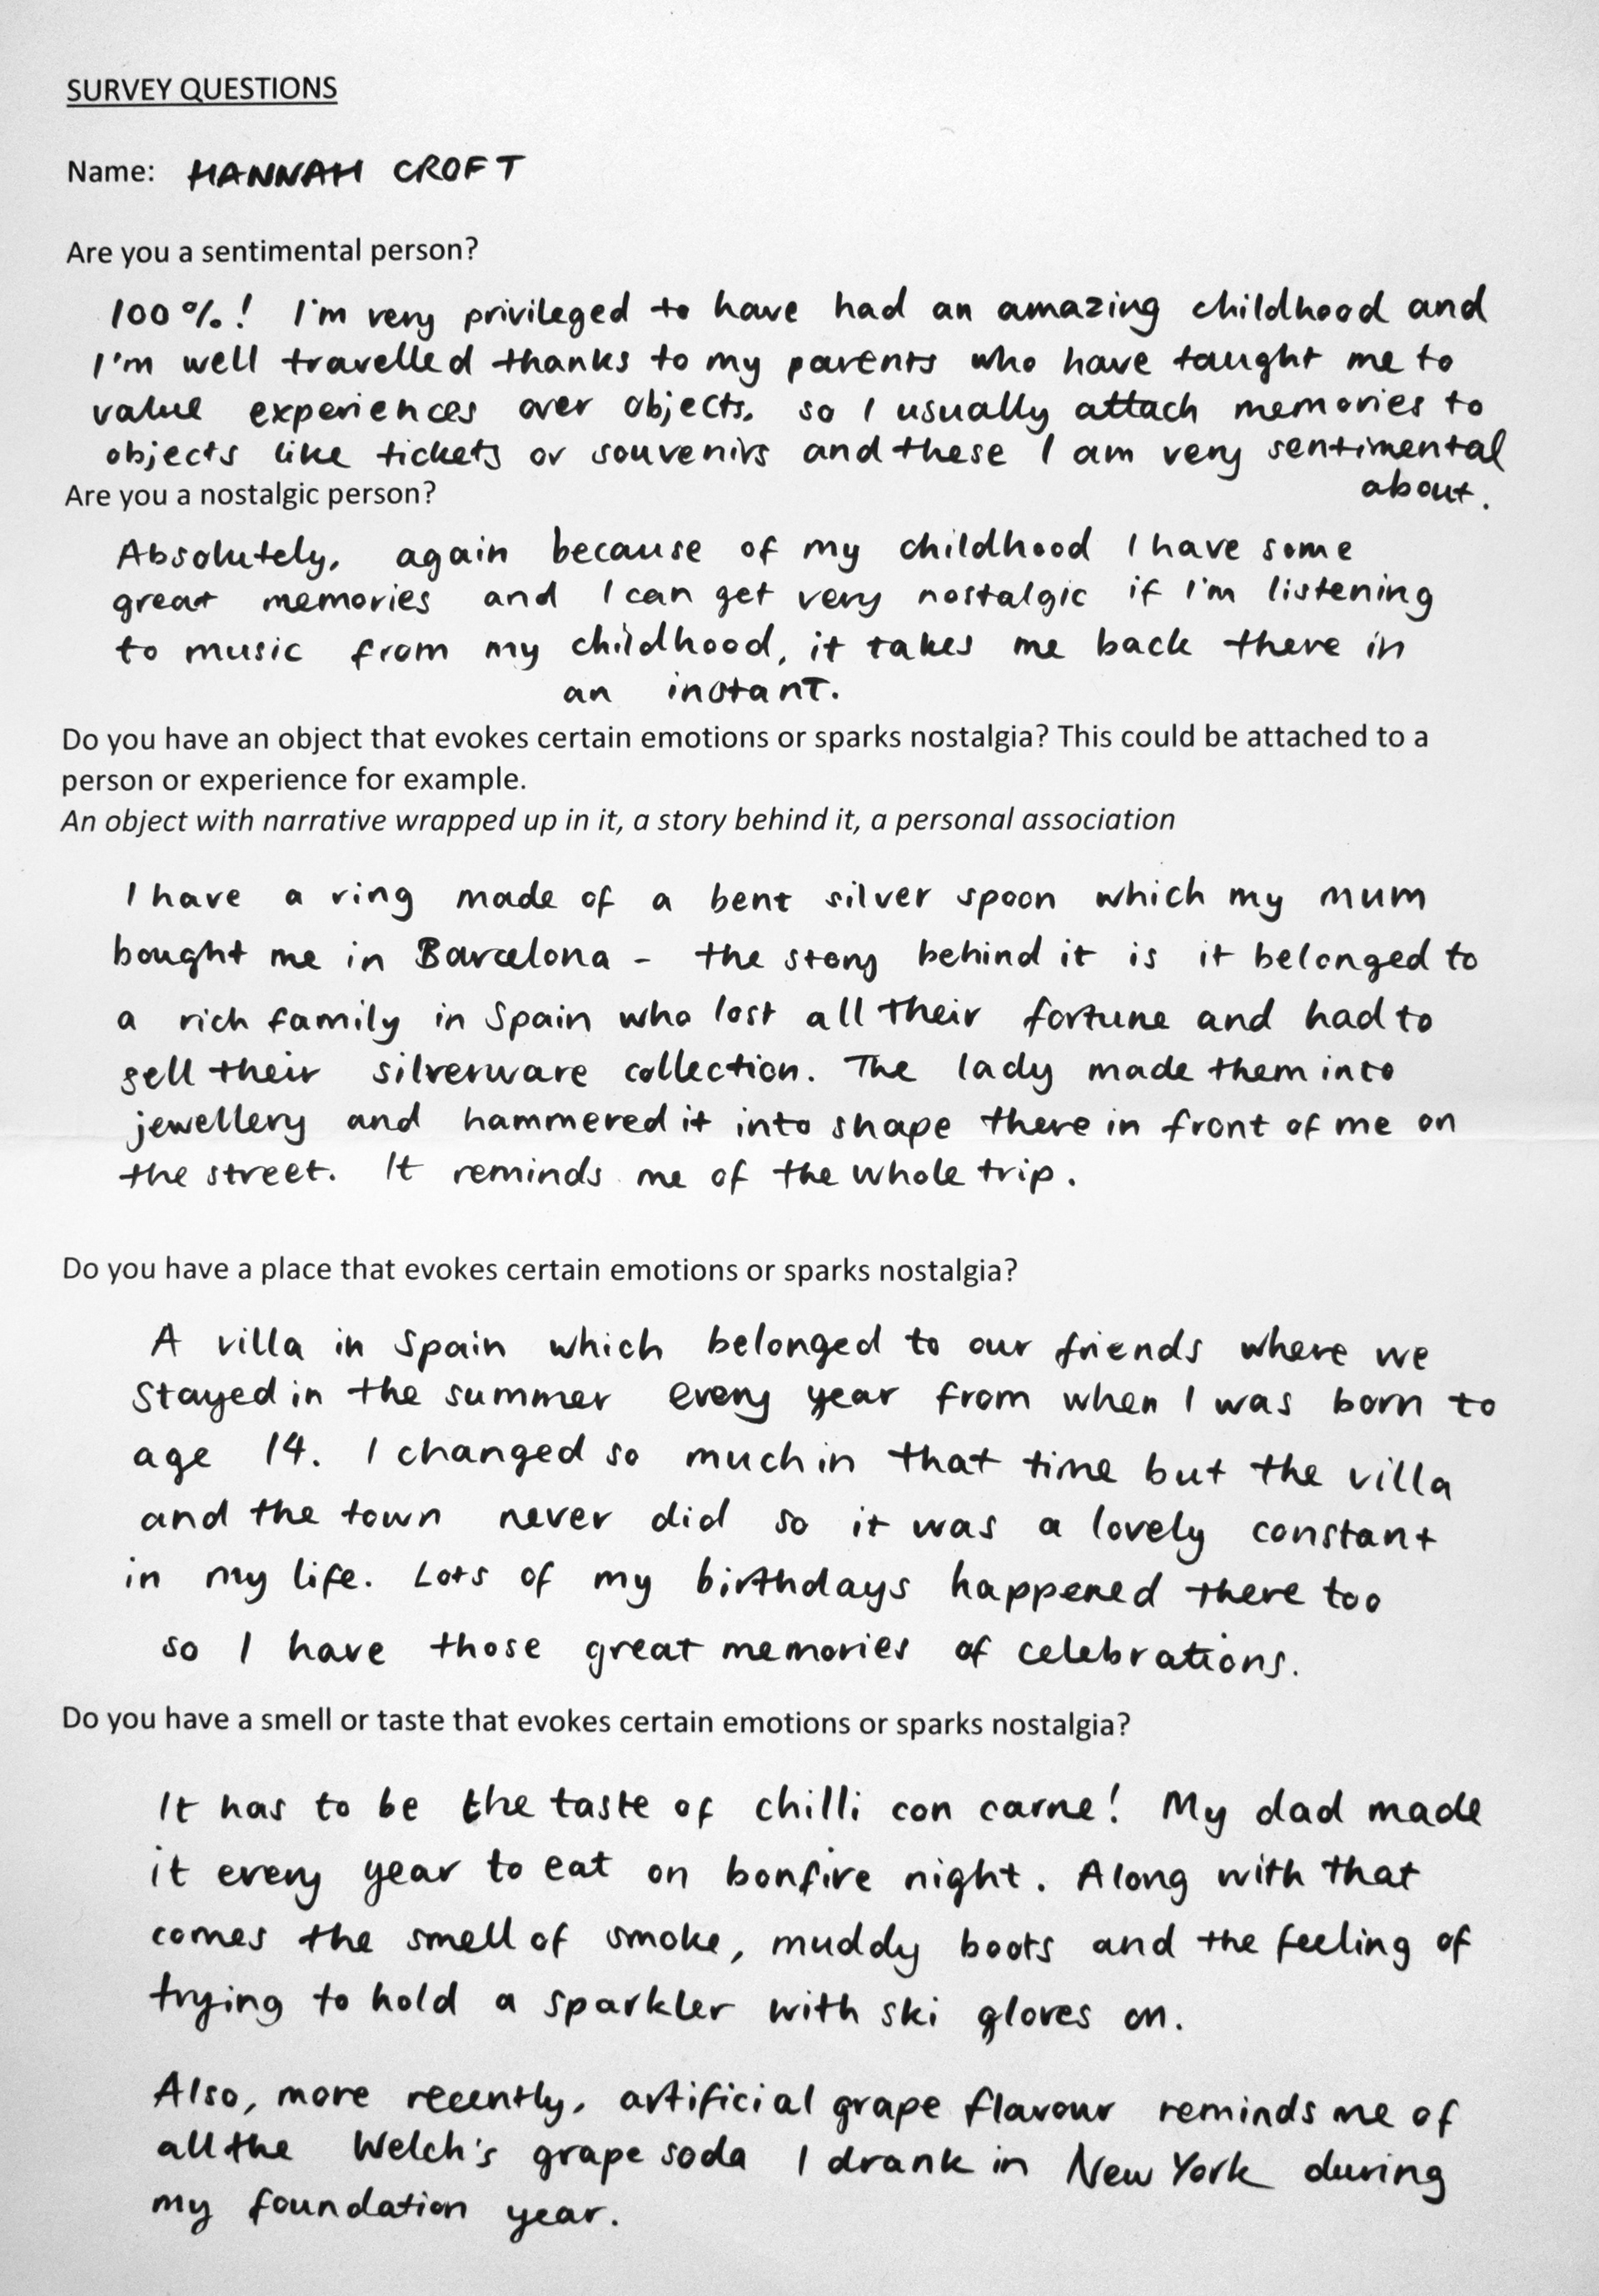 SURVEY QUESTIONS
Name: HANNAH CROFT
Are you a sentimental person?
100%! I'm very privileged to have had an amazing childhood and
I'm well travelled thanks to my parents who have taught me to
value experiences over objects. so I usually attach memories to
objects like tickets or souvenirs and these I am very sentimental
about.
Are you a nostalgic person?
Absolutely, again because of my childhood I have some
great memories and I can get very nostalgic if I'm listening
to music from my childhood, it takes me back there in
an instant.
Do you have an object that evokes certain emotions or sparks nostalgia? This could be attached to a
person or experience for example.
An object with narrative wrapped up in it, a story behind it, a personal association
I have a ring made of a bent silver spoon which my mum
bought me in Barcelona - the story behind it is it belonged to
a rich family in Spain who lost all their fortune and had to
sell their silverware collection. The lady made them into
jewellery and hammered it into shape there in front of me on
the street. It reminds me of the whole trip.
Do you have a place that evokes certain emotions or sparks nostalgia?
A villa in Spain which belonged to our friends where we
stayed in the summer every year from when I was born to
age 14. I changed so much in that time but the villa
and the town never did so it was a lovely constant
in my life. Lots of my birthdays happened there too
so I have those great memories of celebrations.
Do you have a smell or taste that evokes certain emotions or sparks nostalgia?
It has to be the taste of chilli con carne! My dad made
it every year to eat on bonfire night. Along with that
comes the smell of smoke, muddy boots and the feeling of
trying to hold a sparkler with ski gloves on.
Also, more recently, artificial grape flavour reminds me of
all the Welch's grape soda I drank in New York during
my foundation year.